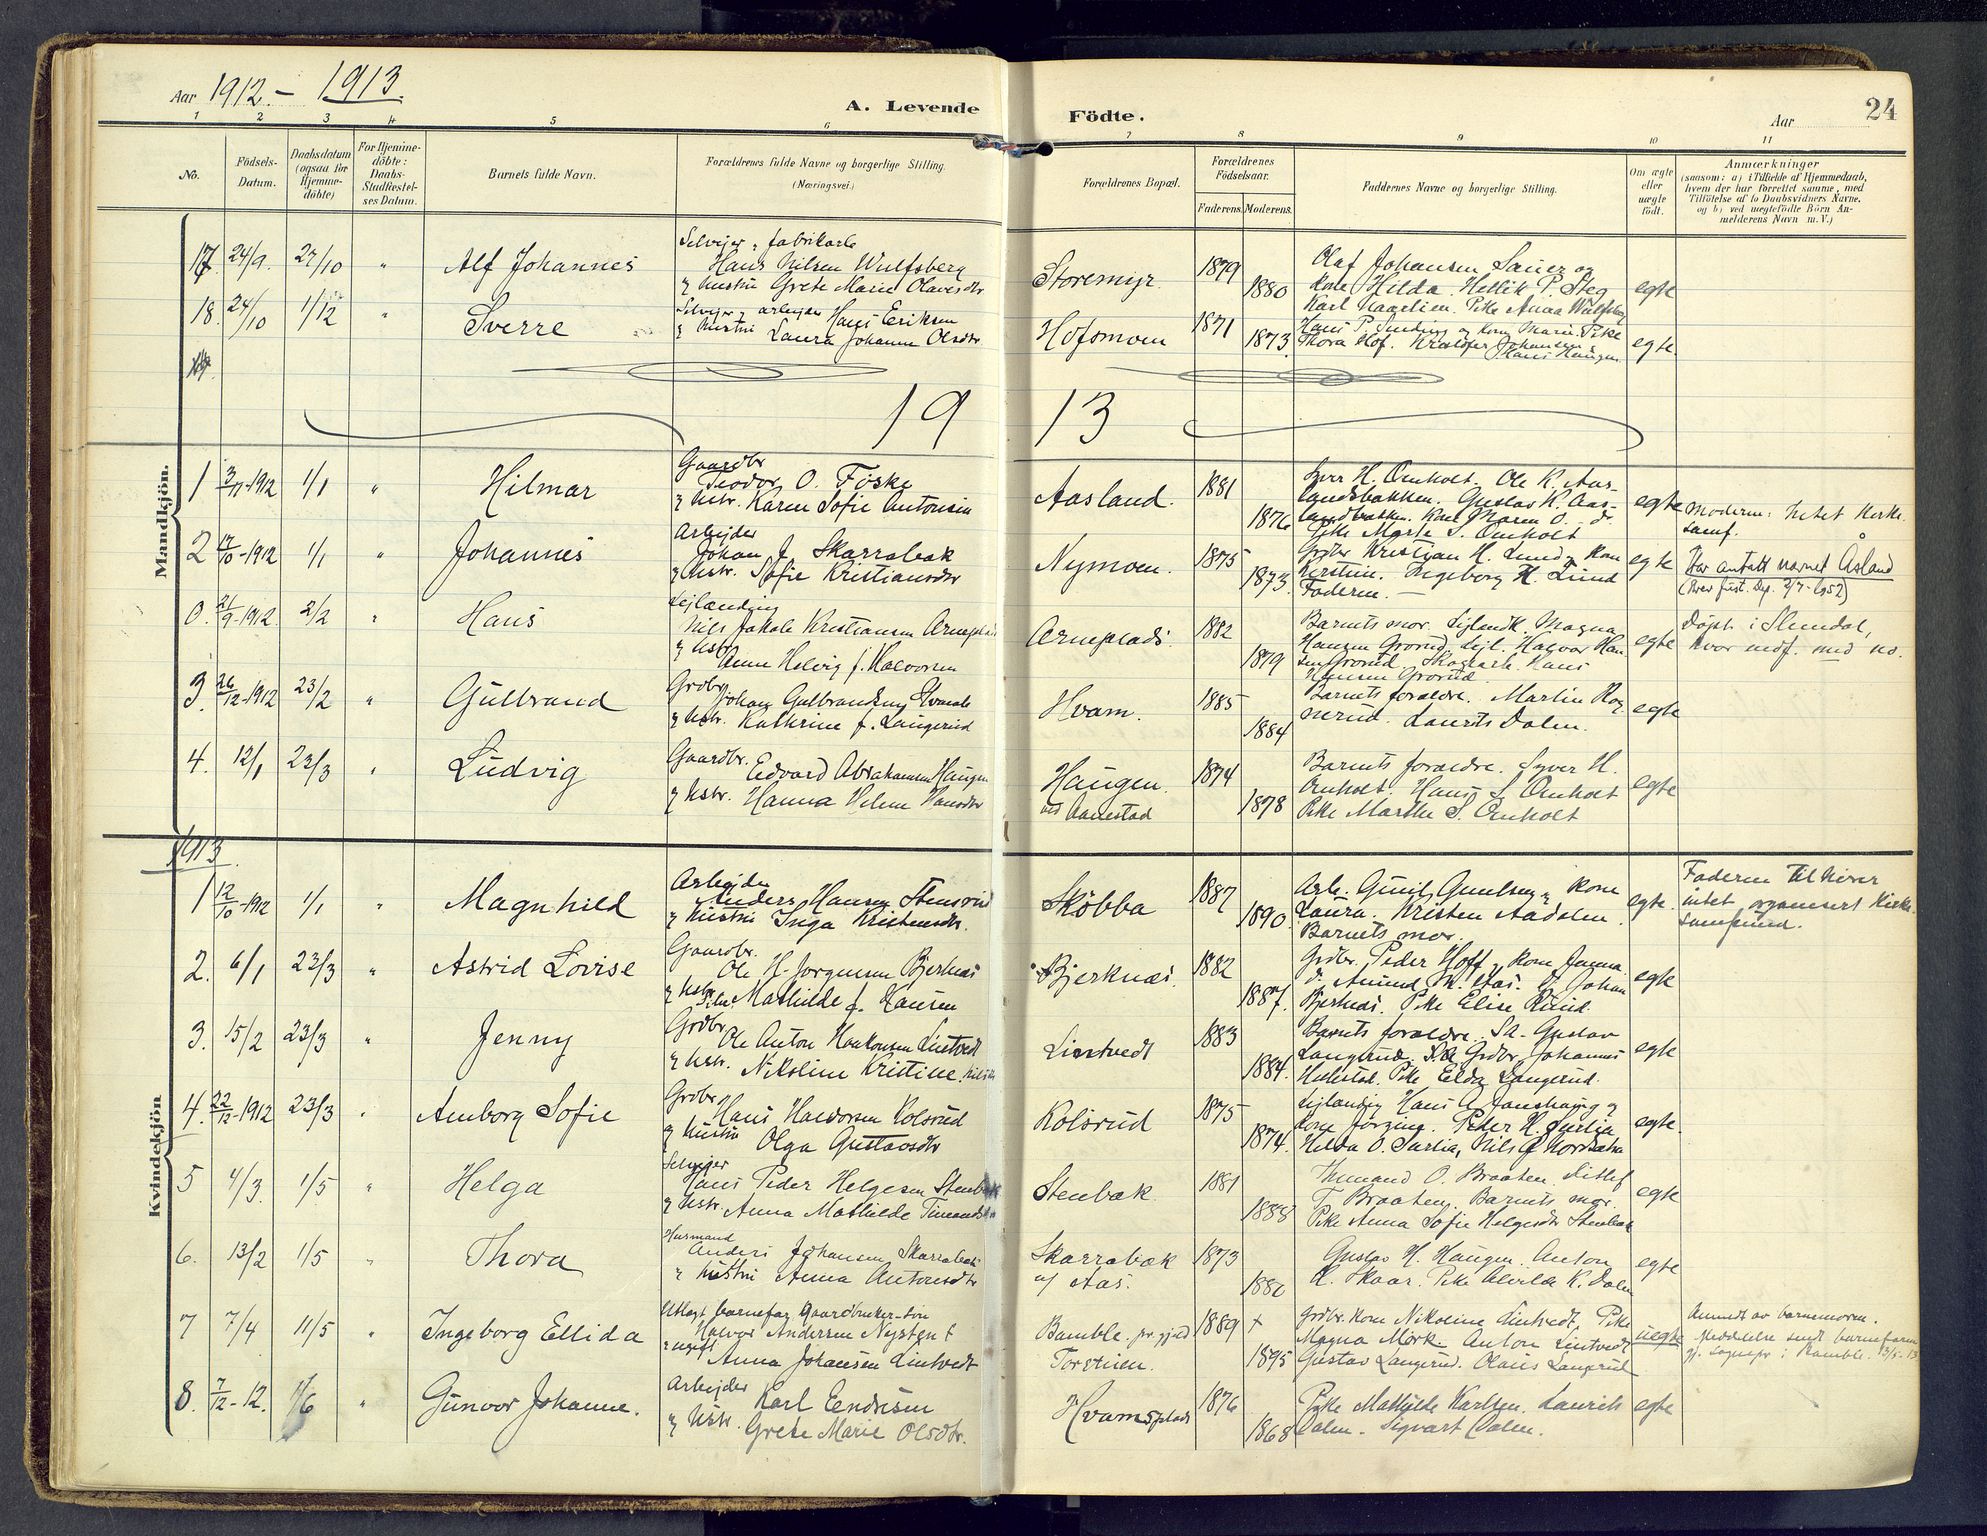 Aar 1912. - 1913.
A. Levende
Födte.
Aar
24
1 2 3 4 5 6 7 8 9 10 11
No.
Födsels-
Datum.
Daabsdatum
(ogsaa for
Hjemme-
döbte)
For Hjemme-
döbte:
Daabs-
Stadfæstel-
ses Datum.
Barnets fulde Navn.
Forældrenes fulde Navne og borgerlige Stilling.
(Næringsvei.)
Forældrenes Bopæl.
Forældrenes
Födselsaar.
Faderens. Moderens.
Faddernes Navne og borgerlige Stilling.
Om ægte
eller
uægte
födt.
Anmærkninger
(saasom: a) i Tilfælde af Hjemmedaab,
hvem der har forrettet samme, med
Tilföielse af to Daabsvidners Navne,
og b) ved uægtefödte Börn An-
melderens Navn m. V.)
Mandkjön.
17. 24/9. 27/10 " Alf Johannes
Selveier, fabrikarb
Hans Nilsen Wulfsberg
og hustru Grete Marie Olavesdtr
Storemyr. 1879 1880
Olaf Johansen Sauer og
kone Hilda. Hellik P. Steg
Karl Kaarlien. Pike Anna Wulfsberg
egte
18. 24/10 1/12 " Sverre
Selveier og arbeider Hans Eriksen
og hustru Laura Johanne Olsdtr
Hofsmoen 1871 1873.
Thora Hof. Kristofer Johansen
Hans Haugen
egte.
19 13
1 3/11-1912 1/1 " Hilmar
Gaardbr
Teodor O. Föske
og hstr. Karen Sofie Antonsen
Aasland. 1881 1876
Syver H. Ornholt. Ole K. Aas-
landsbakken. Gustav K. Aas-
landbakken. Karl Maren O. d.
Pike Marte S. Ornholt
egte
Moderen: intet kirke.
samf.
2 17/10-1912 1/1 " Johannes
Arbeider
Johan J. Skarrabak
og hstr. Sofie Kristiansdtr
Nymoen. 1875 1873.
Grdbr Kristian H. Lund og kone
Kerstine. Ingeborg H. Lund
Faderen. —
egte
Har antatt navnet Åsland
(Brev just. dep. 2/7-1952)
0. 21/9-1912 2/2 " Hans
Leilænding
Nils Jakob Kristiansen Arneplads
og hstr
Anne Helvig f. Halvorsen
Arneplads 1882 1879
Barnets mor. Leilendk. Magna
Hansen Grorud. Leil. Halvor Han
sen Grorud. Skogarb. Hans
Hansen Grorud.
egte
Döpt i Slemdal,
hvor indf. med no.
3. 26/12-1912 23/2 " Gulbrand
Grdbr
Johan Gulbrandsen Hvam
og hstr. Kathrine f. Langerud
Hvam. 1885 1884
Barnets foraldre. Martin Rog
nerud. Laurits Dalen.
egte
4. 12/1 23/3 " Ludvig
Gaardbr.
Edvard Abrahamsen Haugen
og hstr. Hanna Helene Hansdtr
Haugen.
ved Aanestad
1874 1878
Barnets foraldre. Syver H.
Ornholt. Hans S. Ornholt
Pike Marthe S. Ornholt
egte
1913.
Kvindekjön
1 12/10-1912 1/1 " Magnhild
Arbeider
Anders Hansen Stensrud
og hustru Inga Kristensdtr.
Skøbba 1887 1890
Arb. Gunil Gunilsen og kone
Laura. Kristen Aadalen
Barnets mor.
egte.
Faderen tilhører
intet organisert kirke-
samfund.
2. 6/1 23/3 " Astrid Lovise
Gaardbr.
Ole H. Jorgensen Bjerknes
og hstr Mathilde f. Hansen
Bjerknæs. 1882 1887.
Grdbr. Peder Hoff og kone Janna.
d. Amund M. Aas. d. Johan
Bjerknæs. Pike Elise Ruud
egte
3. 15/2 23/3 " Jenny
Grdbr
Ole Anton Haakonsen Lintvedt
og hstr. Nikoline Kristine
Lintvedt 1883 1884.
Barnets foraldre. Sa. Gustav
Langerud. Sa Grdbr Johannes
Hullestad. Pike Elda Langerud.
egte
4. 22/12-1912 23/3 " Amborg Sofie
Grdbr
Hans Halvorsen Kolsrud
og hustru Olga Gustavsdtr
Kolsrud 1875 1874.
Leilending Hans A. Janshaug og
kone Jorgine. Peder H. Surlia
Hilda O. Surlia, Nils
egte.
5 4/3. 1/5 " Helga
Selveier
Hans Peder Helgesen Stenbak
og hstr. Anna Mathilde
Stenbak. 1881 1888
Thurmand O. Braaten. Ditlef
T. Braaten. Barnets mor.
Pike Anna Sofie Helgesdtr Stenbak
egte
6. 13/2 1/5 " Thora
Husmand
Anders Johansen Skarrabak
og hustru Anna Antonsdtr
Skarrabak
u/ Aas.
1873 1880
Gustav H. Haugen. Anton
K. Skaar. Pike Alvilda K. Dalen
egte
7 7/4 11/5 " Ingeborg Ellida
Utlagt barnefar Gaardbruker-søn
Halvor Andersen Nystent
ugift
Anna Johansen Lintvedt
Bamble. pr.gjeld
Torstuen.
1889 + 1895
Grdbr. kone Nikoline Lintvedt, Pike
Magna Mörk. Anton Lintvedt
Gustav Langerud. Olaus Langerud
uegte
Anmeldt av barnemoren.
Meddelelse sendt barnefaren
gj. sognepr i Bamble. 13/5-13
8. 7/12-12. 1/6 " Gunvor Johanne.
Arbeider
Karl Endresen
og hstr. Grete Marie Olsdtr.
Hvamsplads 1876 1868
Pike Mathilde Karlsen. Laurits
Dalen. Sigvart Dalen.
egte